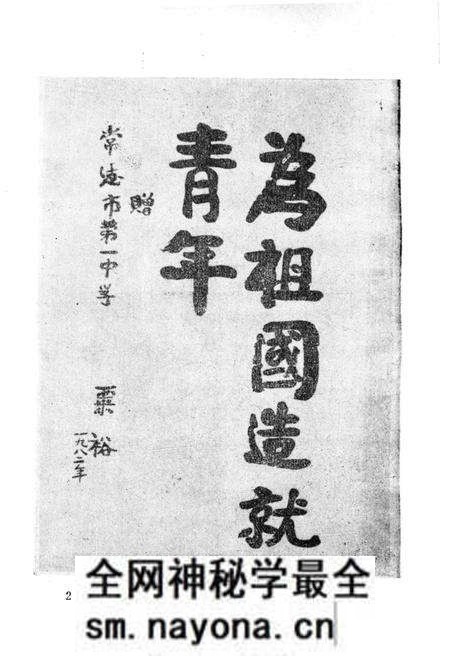 為祖國造就
青年
贈
常德市第一中学
粟裕
一九八二年
2
全网神秘学最全
sm.nayona.cn